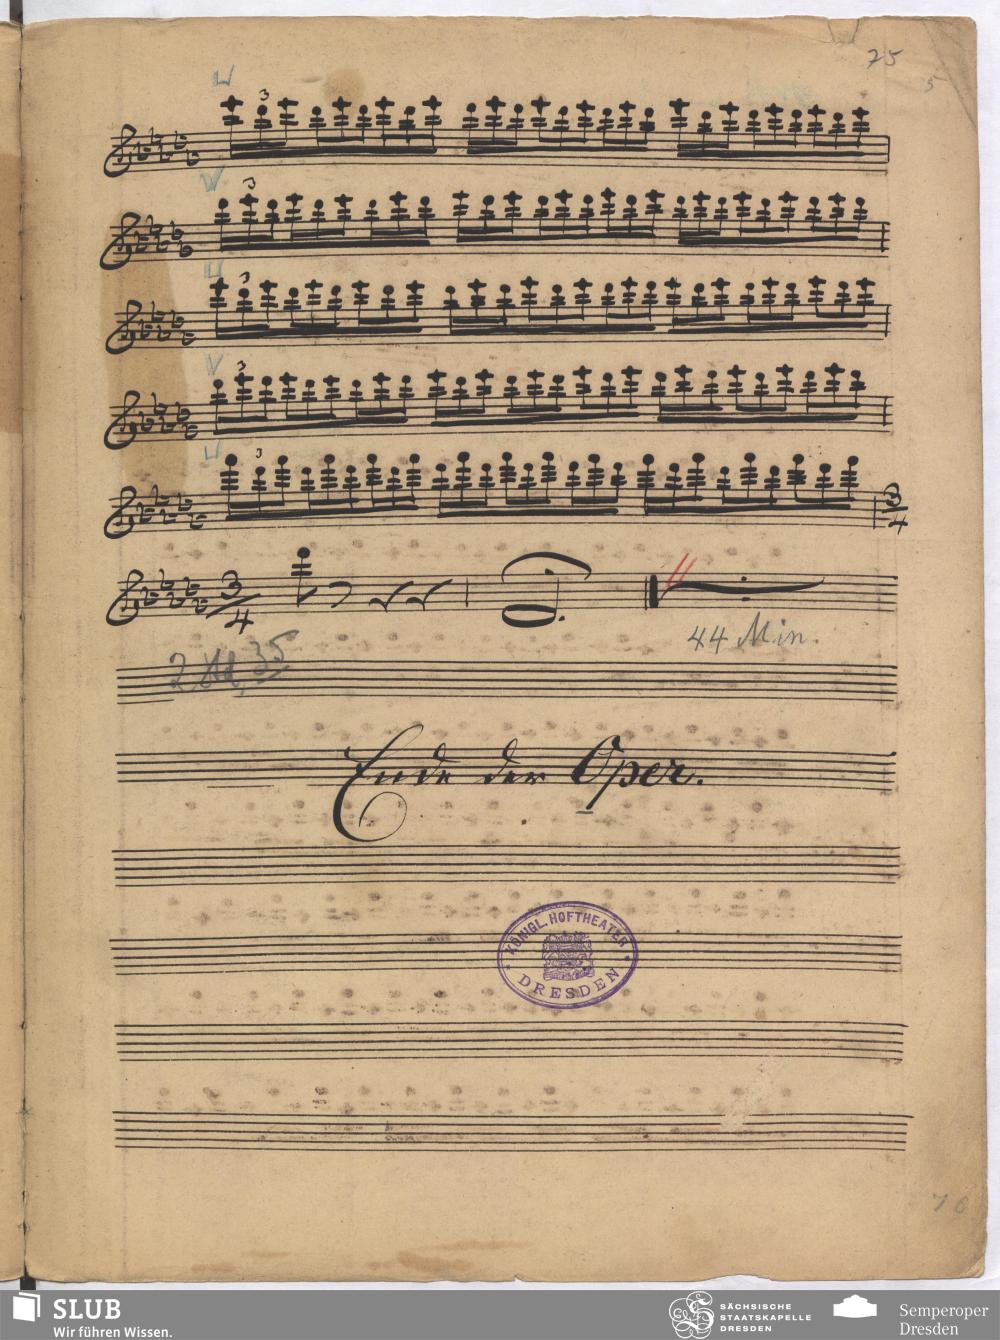 75
5
3
3
3
3
3
3
4
3
4
44 Min.
2 Std, 35
Ende der Oper.
KÖNIGL. HOFTHEATER
DRESDEN
70
SLUB
Wir führen Wissen.
SÄCHSISCHE
STAATSKAPELLE
DRESDEN
Semperoper
Dresden